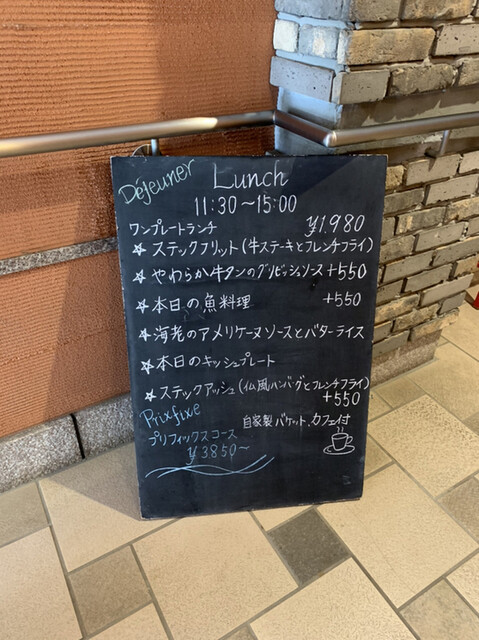 Déjeuner
Lunch
11:30~15:00
ワンプレートランチ ¥1,980
☆ステックフリット(牛ステーキとフレンチフライ)
☆やわらか牛タンのグリビッシュソース +550
☆本日の魚料理 +550
☆海老のアメリケーヌソースとバターライス
☆本日のキッシュプレート
☆ステックアッシュ(仏風ハンバーグとフレンチフライ)
+550
Prixfixe
プリフィックスコース
¥3850~
自家製バケット、カフェ付